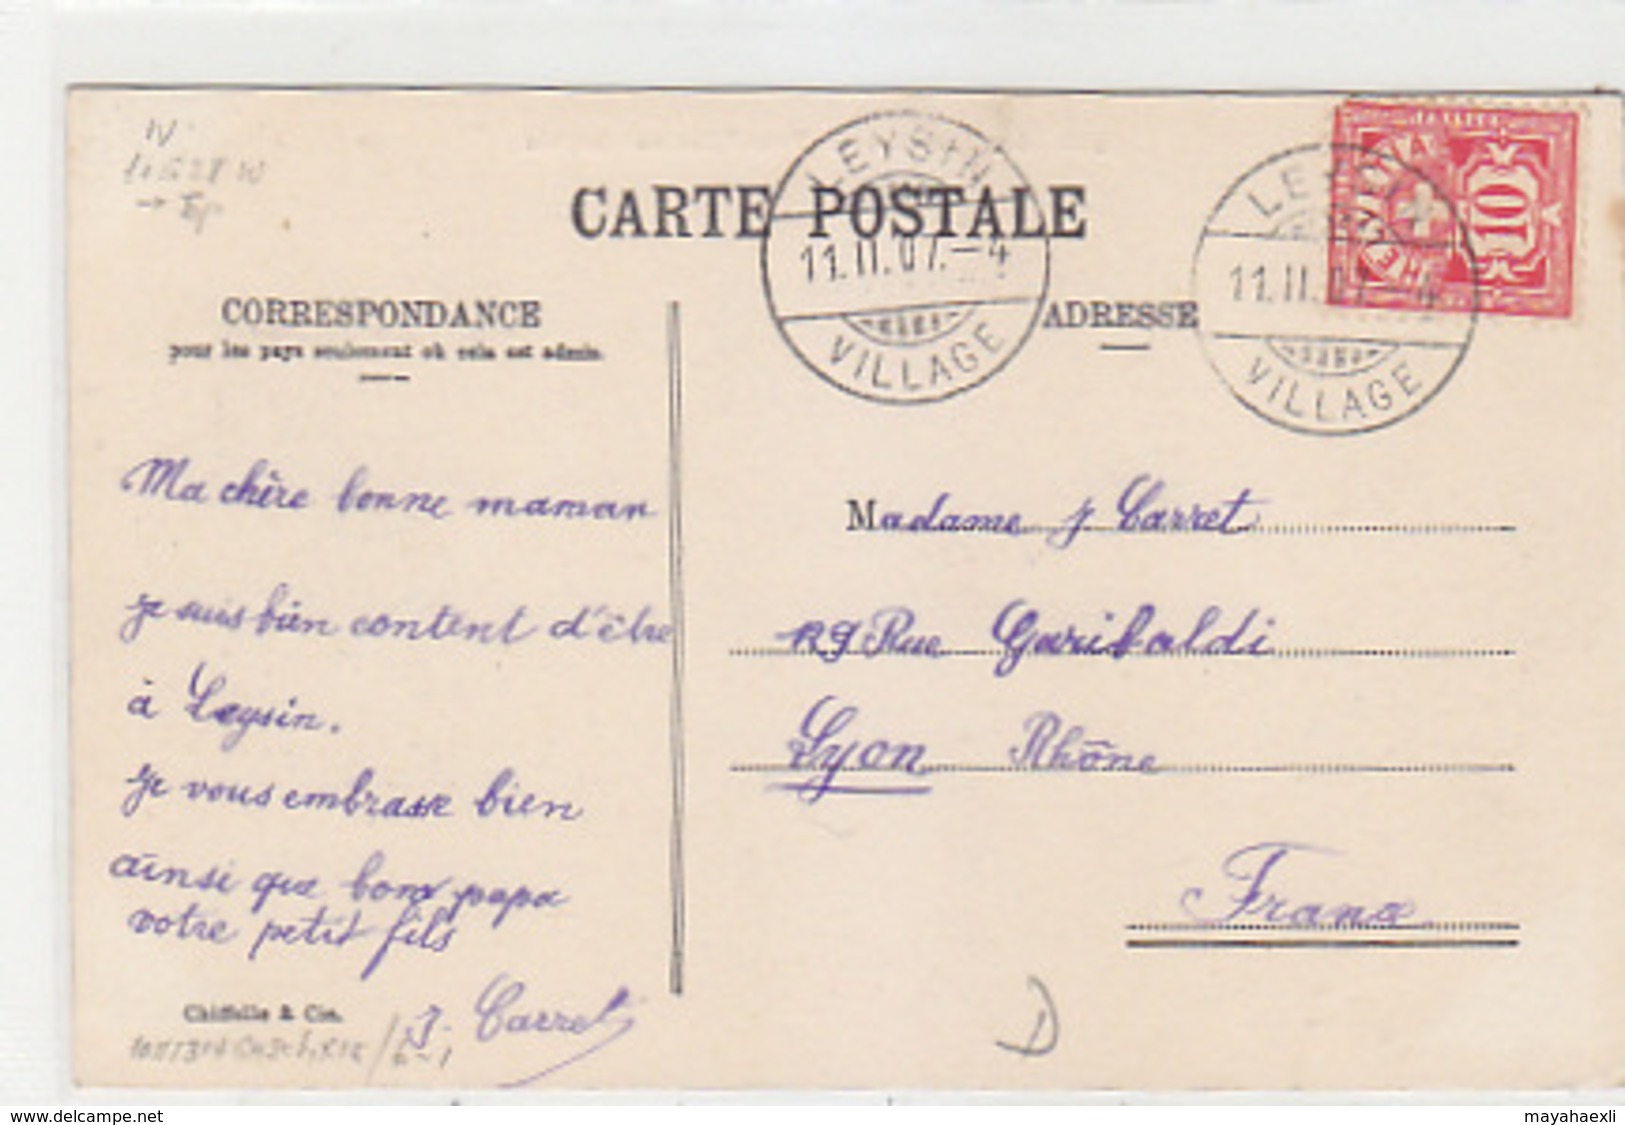 CARTE POSTALE
LEYSIN
11.II.07.–4
VILLAGE
LEYSIN
11.II.07.–4
VILLAGE
HELVETIA
10
CORRESPONDANCE
pour les pays seulement où cela est admis.
ADRESSE
Ma chère bonne maman
je suis bien content d'être
à Leysin.
Je vous embrasse bien
ainsi que bon papa
votre petit fils
J. Carret
Madame J Carret
129 Rue Garibaldi
Lyon Rhône
France
Chiffelle & Cie.
D
www.delcampe.net
mayahaexli